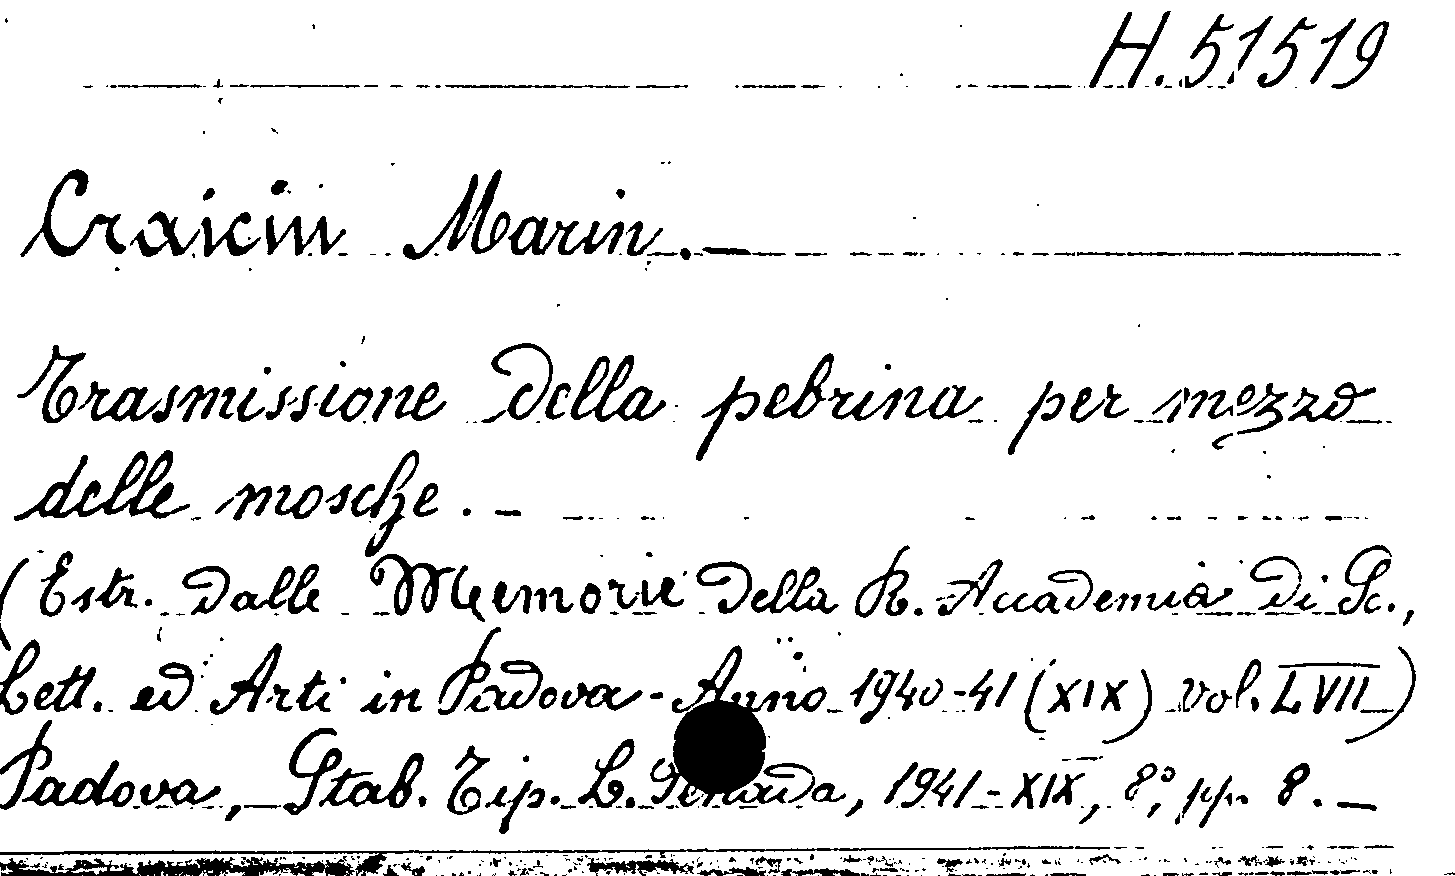 H. 51519
Craiciu Marin. —
Trasmissione della pebrina per mezzo
delle mosche. —
(Estr. dalle Memorie della R. Accademia di Sc.,
Lett. ed Arti in Padova - Anno 1940-41 (XIX) vol. LVII)
Padova, Stab. Tip. L. Penada, 1941-XIX, 8°, pp. 8. —